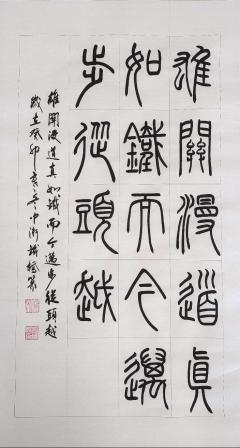 雄關漫道真
如鐵而今邁
步從頭越
雄關漫道真如鐵而今邁步從頭越
歲在癸卯